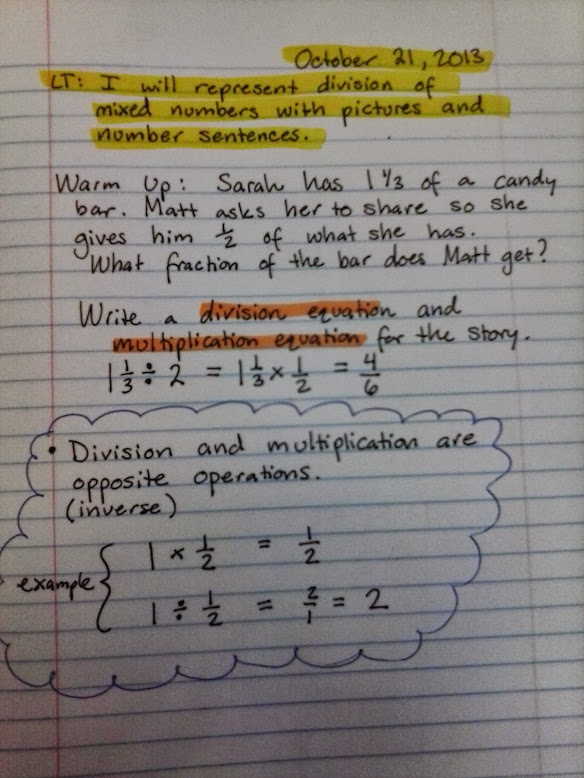 October 21, 2013
LT: I will represent division of
mixed numbers with pictures and
number sentences.
Warm Up: Sarah has 1 1/3 of a candy
bar. Matt asks her to share so she
gives him 1/2 of what she has.
What fraction of the bar does Matt get?
Write a division equation and
multiplication equation for the story.
1 1/3 ÷ 2 = 1 1/3 × 1/2 = 4/6
• Division and multiplication are
opposite operations.
(inverse)
example { 1 × 1/2 = 1/2
1 ÷ 1/2 = 2/1 = 2